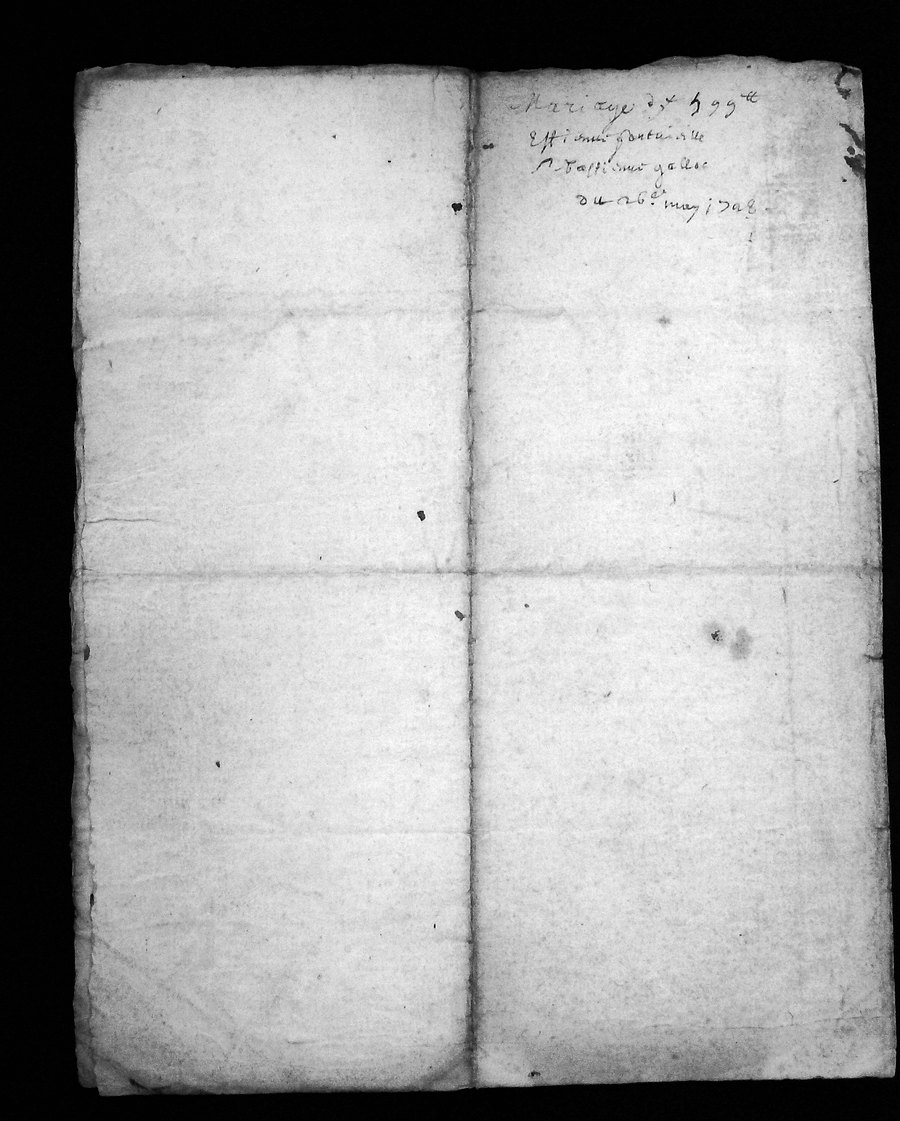 Mariage de 599tt
Estienne fontaineille
Bastienne galloc
du 26e may 1728